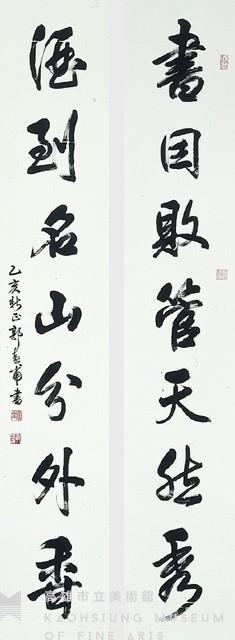 書因敗管天然秀
酒到名山分外香
乙亥新正郭春甫書
高雄市立美術館
KAOHSIUNG MUSEUM
OF FINE ARTS